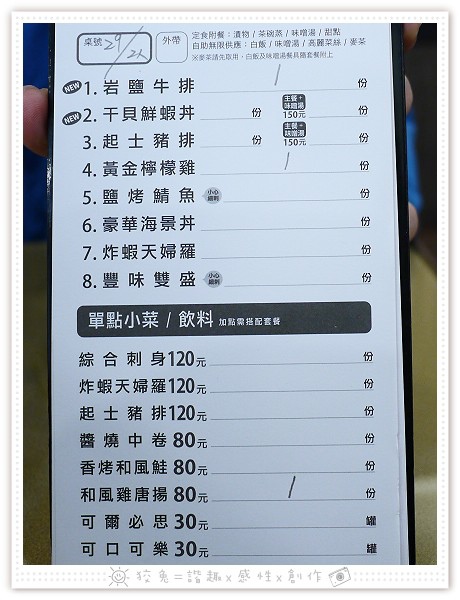 桌號 29/2人 外帶 定食附餐：漬物 / 茶碗蒸 / 味噌湯 / 甜點
自助無限供應：白飯 / 味噌湯 / 高麗菜絲 / 麥茶
※麥茶請先取用，白飯及味噌湯餐具隨套餐附上
NEW 1. 岩鹽牛排 1 份
NEW 2. 干貝鮮蝦丼 份 主餐+味噌湯 150元 份
3. 起士豬排 份 主餐+味噌湯 150元 份
4. 黃金檸檬雞 1 份
5. 鹽烤鯖魚 小心細刺 份
6. 豪華海景丼 份
7. 炸蝦天婦羅 份
8. 豐味雙盛 小心細刺 份
單點小菜 / 飲料 加點需搭配套餐
綜合刺身120元 份
炸蝦天婦羅120元 份
起士豬排120元 份
醬燒中卷 80元 份
香烤和風鮭 80元 份
和風雞唐揚 80元 1 份
可爾必思 30元 罐
可口可樂 30元 罐
狡兔=諧趣x感性x創作